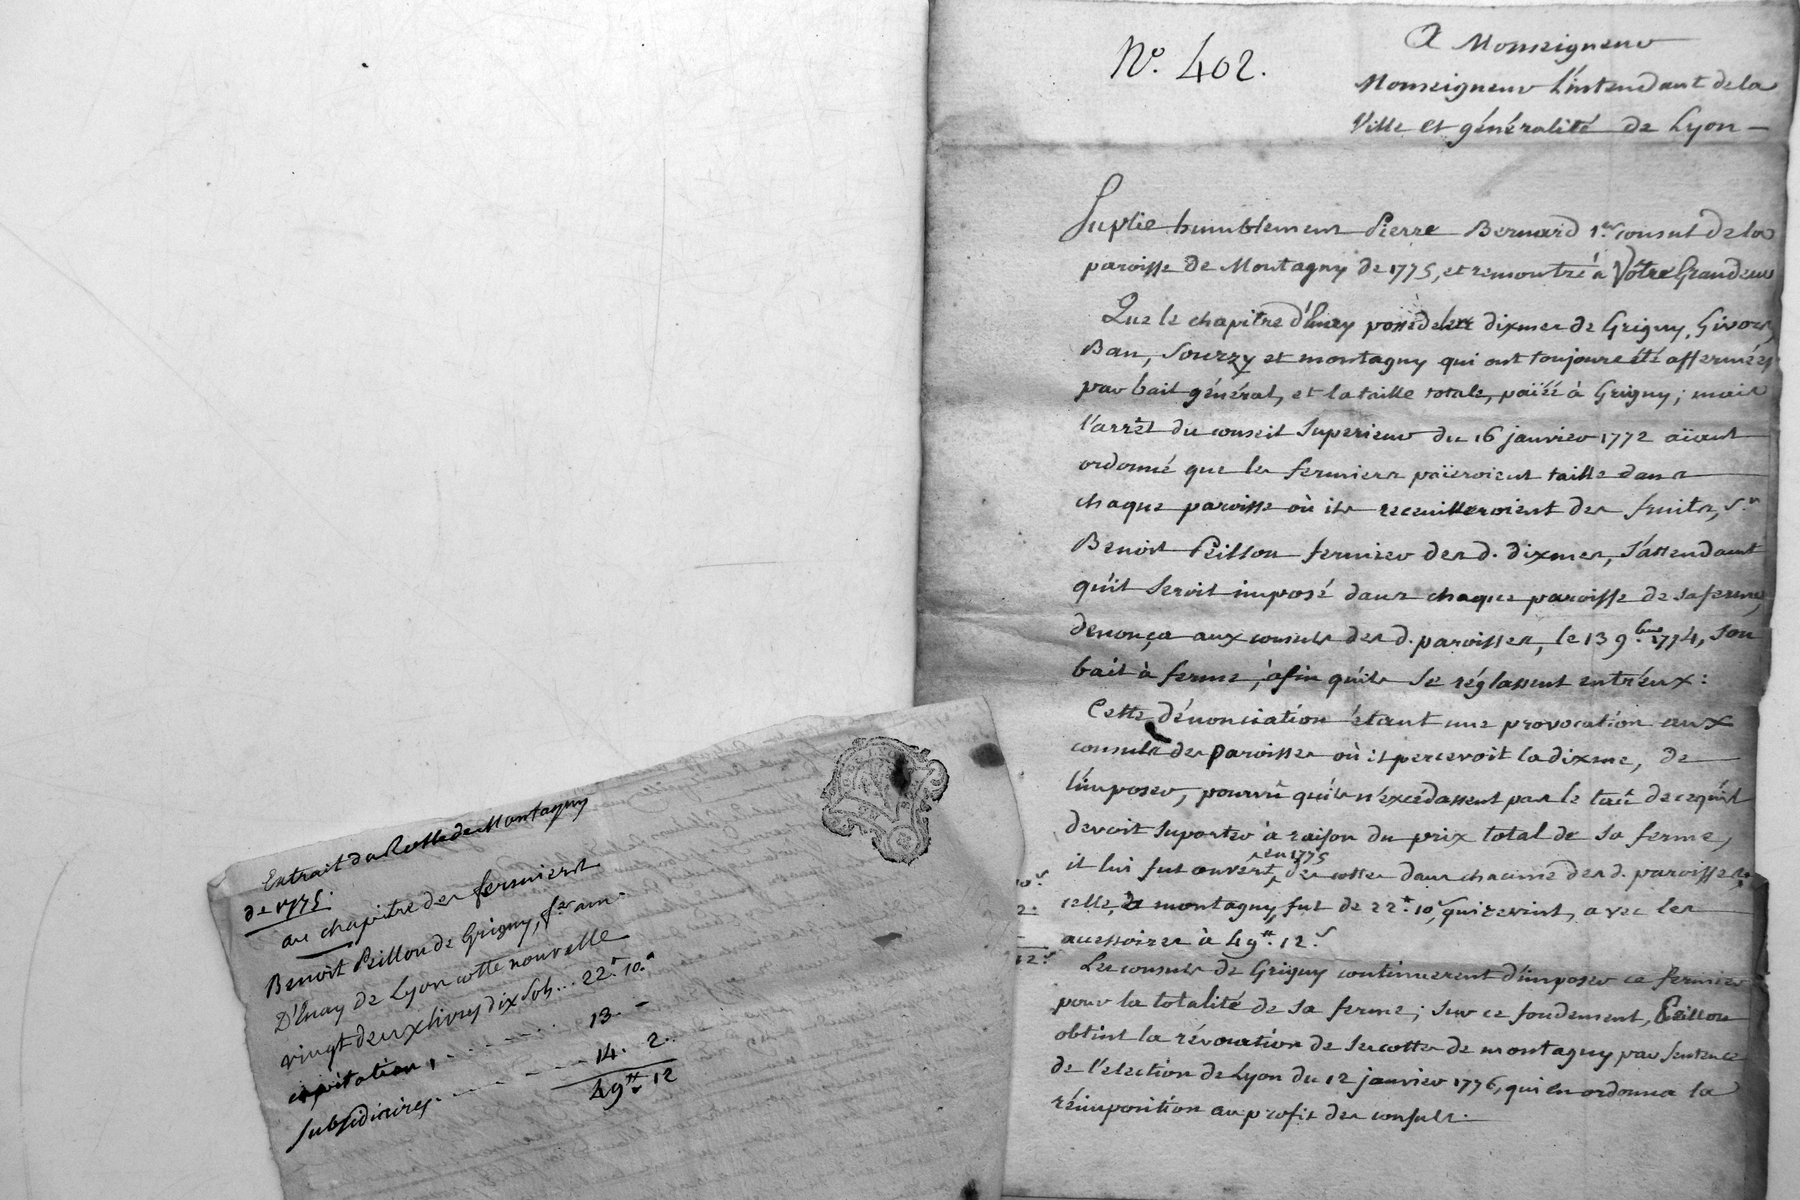 N.º 402.
A Monseigneur
Monseigneur L'intendant de la
Ville et généralité de Lyon
Suplie humblement Pierre Bernard 1.er consul de la
paroisse de Montagny de 1775, et remontre à Vôtre Grandeur
Que le chapitre d'Enay possede les dixmes de Grigny, Givors,
Ban, Sourzy et montagny qui ont toujours été affermées
par bail général, et la taille totale, païée à Grigny; mais
l'arrêt du conseil Superieur du 16 janvier 1772 aïant
ordonné que les fermiers païeroient taille dans
chaque paroisse où ils receuilleroient des fruits, S.r
Benoit Peillon fermier des d. dixmes, s'attendant
qu'il seroit imposé dans chaque paroisse de sa ferme,
denonça aux consuls des d. paroisses, le 13 9.bre 1774, son
bail à ferme, afin qu'ils se réglassent entr'eux:
Cette dénonciation étant une provocation aux
consuls des paroisses où il percevoit la dixme, de
l'imposer, pourvû qu'ils n'excédassent pas le taû de ce qu'il
devoit suporter à raison du prix total de sa ferme,
il lui fut ouvert, en 1775 des cottes dans chacune des d. paroisses,
celle, de montagny, fut de 22.tt 10.s, qui revint, avec les
accessoires à 49.tt 12.s
Les consuls de Grigny continuerent d'imposer ce fermier
pour la totalité de sa ferme; sur ce fondement, Peillon
obtint la révocation de sa cotte de montagny par sentence
de l'election de Lyon du 12 janvier 1776, qui en ordonna la
réimposition au profit des consuls.
Extrait du Rolle de Montagny
de 1775.
au chapitre des fermiers
Benoît Peillon de Grigny, f.er am.
D'Enay de Lyon cotte nouvelle
vingt deux livres dix sols... 22.tt 10.s
capitation, 13. -
subsidiaires 14. 2.
49.tt 12